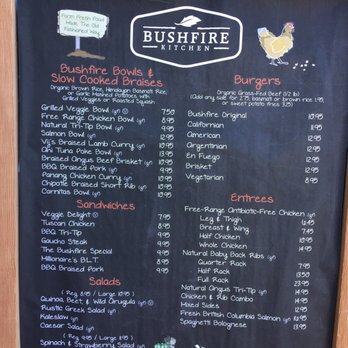 Farm Fresh Food
Made The Old
Fashioned Way
BUSHFIRE
KITCHEN
Bushfire Bowls &
Slow Cooked Braises
Organic Brown Rice, Himalayan Basmati Rice
or Garlic Mashed Potatoes with
Grilled Veggies or Roasted Squash
Grilled Veggie Bowl (gf) 7.50
Free Range Chicken Bowl (gf)
Natural Tri-Tip Bowl (gf)
Salmon Bowl (gf)
Vij's Braised Lamb Curry (gf)
Ahi Tuna Poke Bowl (gf)
Braised Angus Beef Brisket (gf)
BBQ Braised Pork (gf)
Panang Chicken Curry (gf)
Chipotle Braised Short Rib (gf)
Carnitas Bowl (gf)
Sandwiches
Veggie Delight 7.95
Tuscan Chicken
BBQ Tri-Tip
Gaucho Steak
The Bushfire Special
Millionaire's B.L.T.
BBQ Braised Pork
Salads
( Reg 8.95 / Large 10.95 )
Quinoa, Beet, & Wild Arugula (gf)
Rustic Greek Salad (gf)
Kaleslaw (gf)
Caesar Salad (gf)
( Reg 9.95 / Large 11.95 )
Spinach & Strawberry Salad (gf)
Burgers
Organic Grass-Fed Beef (1/2 lb)
Bushfire Original 10.95
Californian 11.95
American 12.95
Argentinian 12.95
En Fuego 12.95
Brisket 12.95
Vegetarian 8.95
Entrees
Free-Range Antibiotic-Free Chicken (gf)
Leg & Thigh
Breast & Wing 7.45
Half Chicken
Whole Chicken 14.95
Natural Baby Back Ribs (gf)
Quarter Rack 7.95
Half Rack 13.50
Full Rack 23.95
Natural Angus Tri-Tip (gf) 14.95
Chicken & Rib Combo 14.95
Mixed Sides
Fresh British Columbia Salmon (gf)
Spaghetti Bolognese 13.95